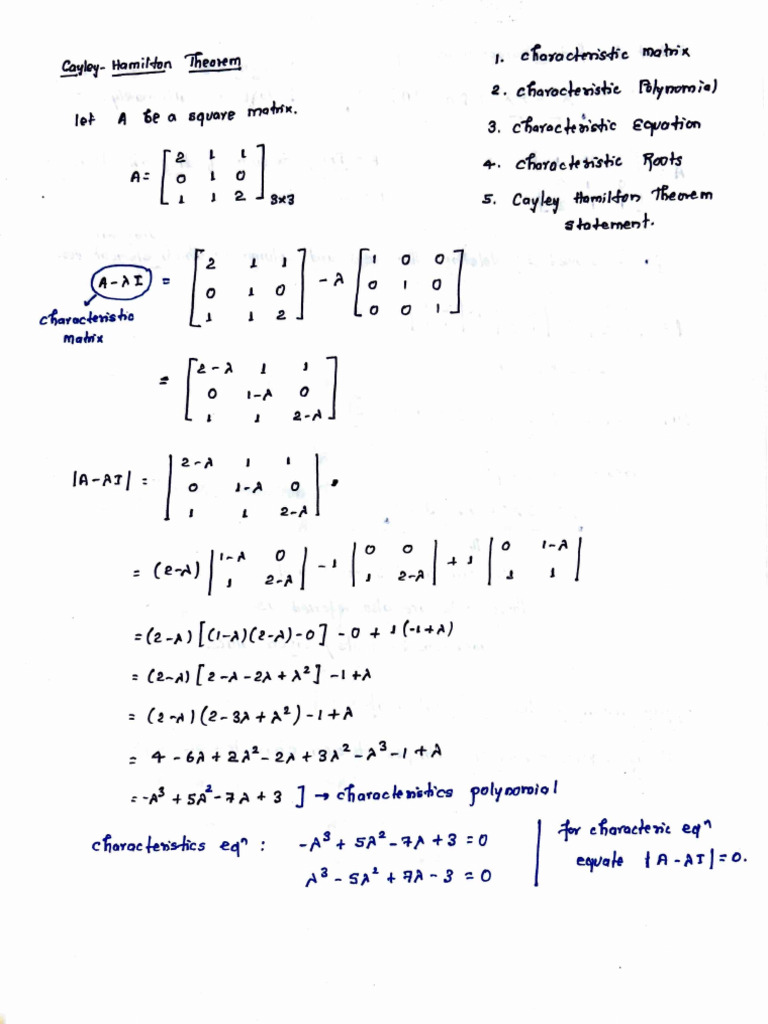 Cayley-Hamilton Theorem
let A be a square matrix.
A = [2 1 1
0 1 0
1 1 2]3x3
1. characteristic matrix
2. characteristic Polynomial
3. characteristic Equation
4. characteristic Roots
5. Cayley Hamilton Theorem
statement.
A-λI = [2 1 1; 0 1 0; 1 1 2] - λ [1 0 0; 0 1 0; 0 0 1]
characteristic
matrix
= [2-λ 1 1; 0 1-λ 0; 1 1 2-λ]
|A-λI| = |2-λ 1 1; 0 1-λ 0; 1 1 2-λ|
= (2-λ) |1-λ 0; 1 2-λ| - 1 |0 0; 1 2-λ| + 1 |0 1-λ; 1 1|
= (2-λ) [(1-λ)(2-λ)-0] - 0 + 1(-1+λ)
= (2-λ) [2-λ-2λ+λ²] -1+λ
= (2-λ)(2-3λ+λ²) -1+λ
= 4-6λ+2λ²-2λ+3λ²-λ³-1+λ
= -λ³+5λ²-7λ+3 ] → characteristics polynomial
characteristics eqⁿ : -λ³+5λ²-7λ+3=0
λ³-5λ²+7λ-3=0
for characteric eqⁿ
equate |A-λI|=0.